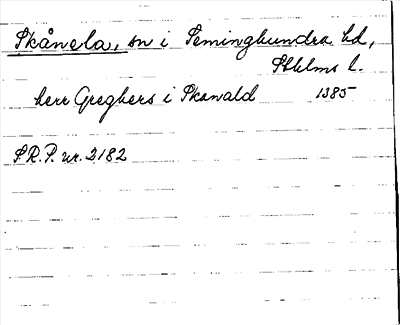 Skånela, sn i Seminghundra hd,
Sthlms l.
herr Greghers i Skanald 1385
S.R.P. nr. 2182